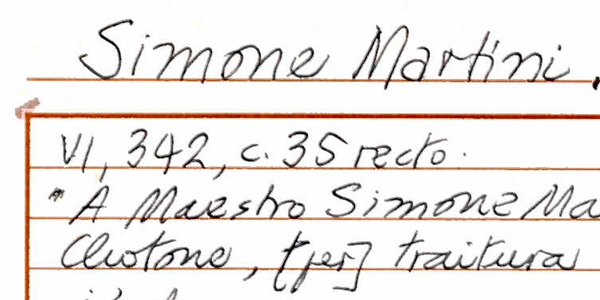 Simone Martini.
VI, 342, c. 35 recto.
"A Maestro Simone Ma
[per] traitura